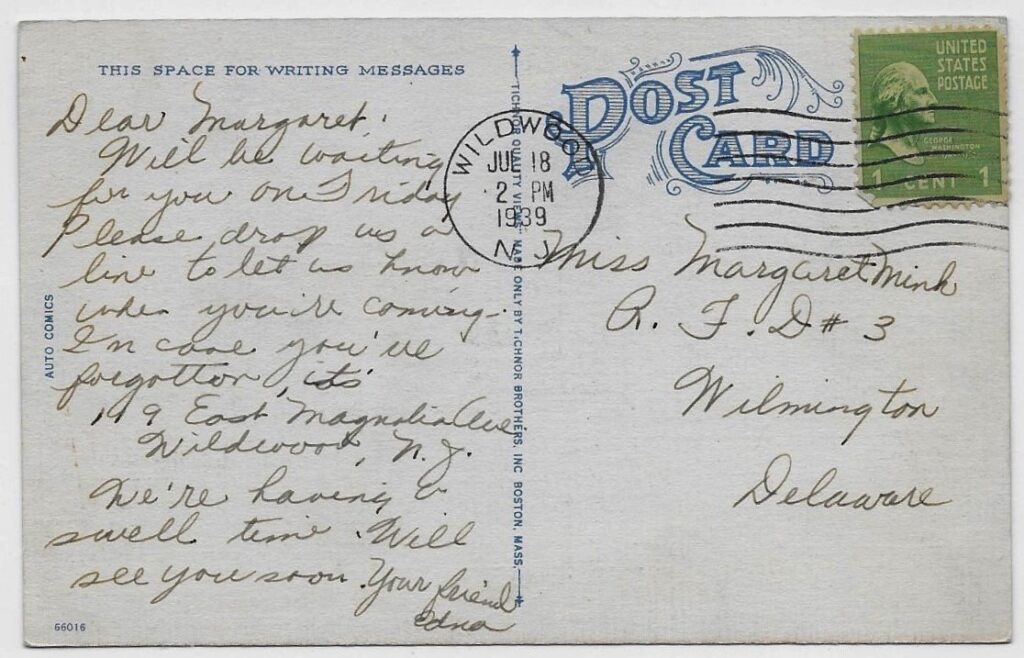 THIS SPACE FOR WRITING MESSAGES
Dear Margaret,
Will be waiting
for you on Friday
Please drop us a
line to let us know
when you're coming.
In case you've
forgotton, its
119 East Magnolia Ave
Wildwood, N.J.
We're having a
swell time. Will
see you soon. Your friend
Edna
AUTO COMICS
66016
TICHNOR QUALITY VIEWS MADE ONLY BY TICHNOR BROTHERS, INC. BOSTON, MASS.
POST
CARD
WILDWOOD
JUL 18
2 PM
1939
N.J.
UNITED
STATES
POSTAGE
GEORGE
WASHINGTON
1 CENT 1
Miss Margaret Minh
R. F. D # 3
Wilmington
Delaware